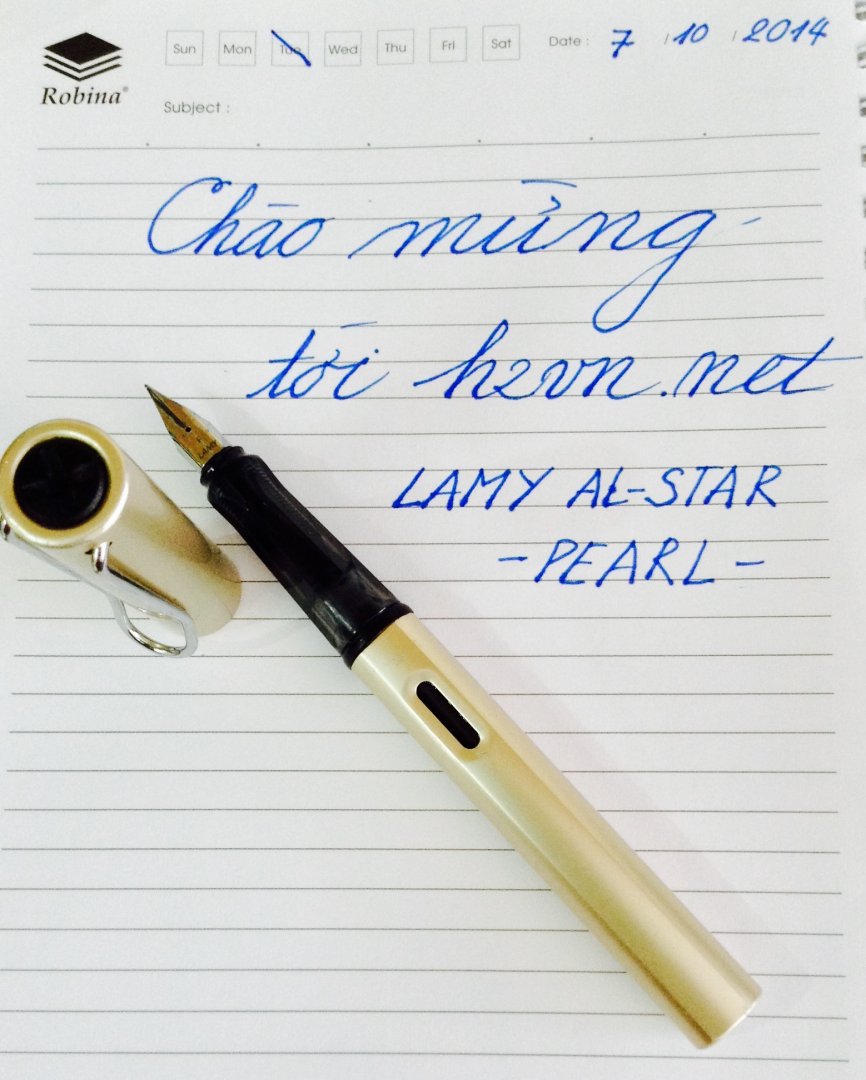 Robina®
Sun Mon Tue Wed Thu Fri Sat Date : 7 / 10 / 2014
Subject :
Chào mừng
tới h2vn.net
LAMY AL-STAR
- PEARL -
LAMY